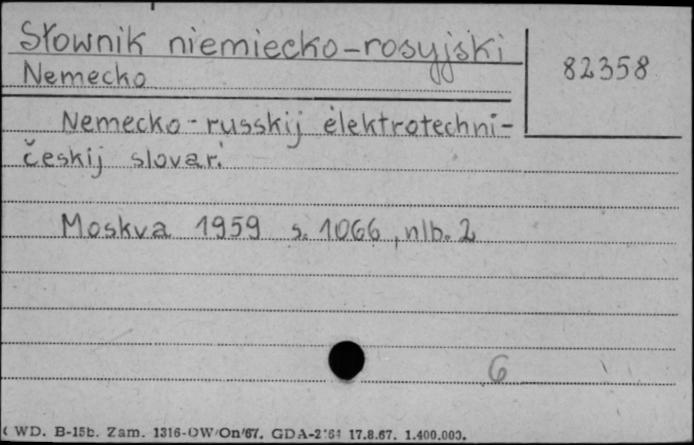 Słownik niemiecko-rosyjski
82358
Nemecko
Nemecko-russkij èlektrotechni-
českij slovar'.
Moskva 1959 s. 1066, nlb. 2
6
WD. B-15b. Zam. 1316-OW/On/67. GDA-2 17.8.67. 1.400.000.